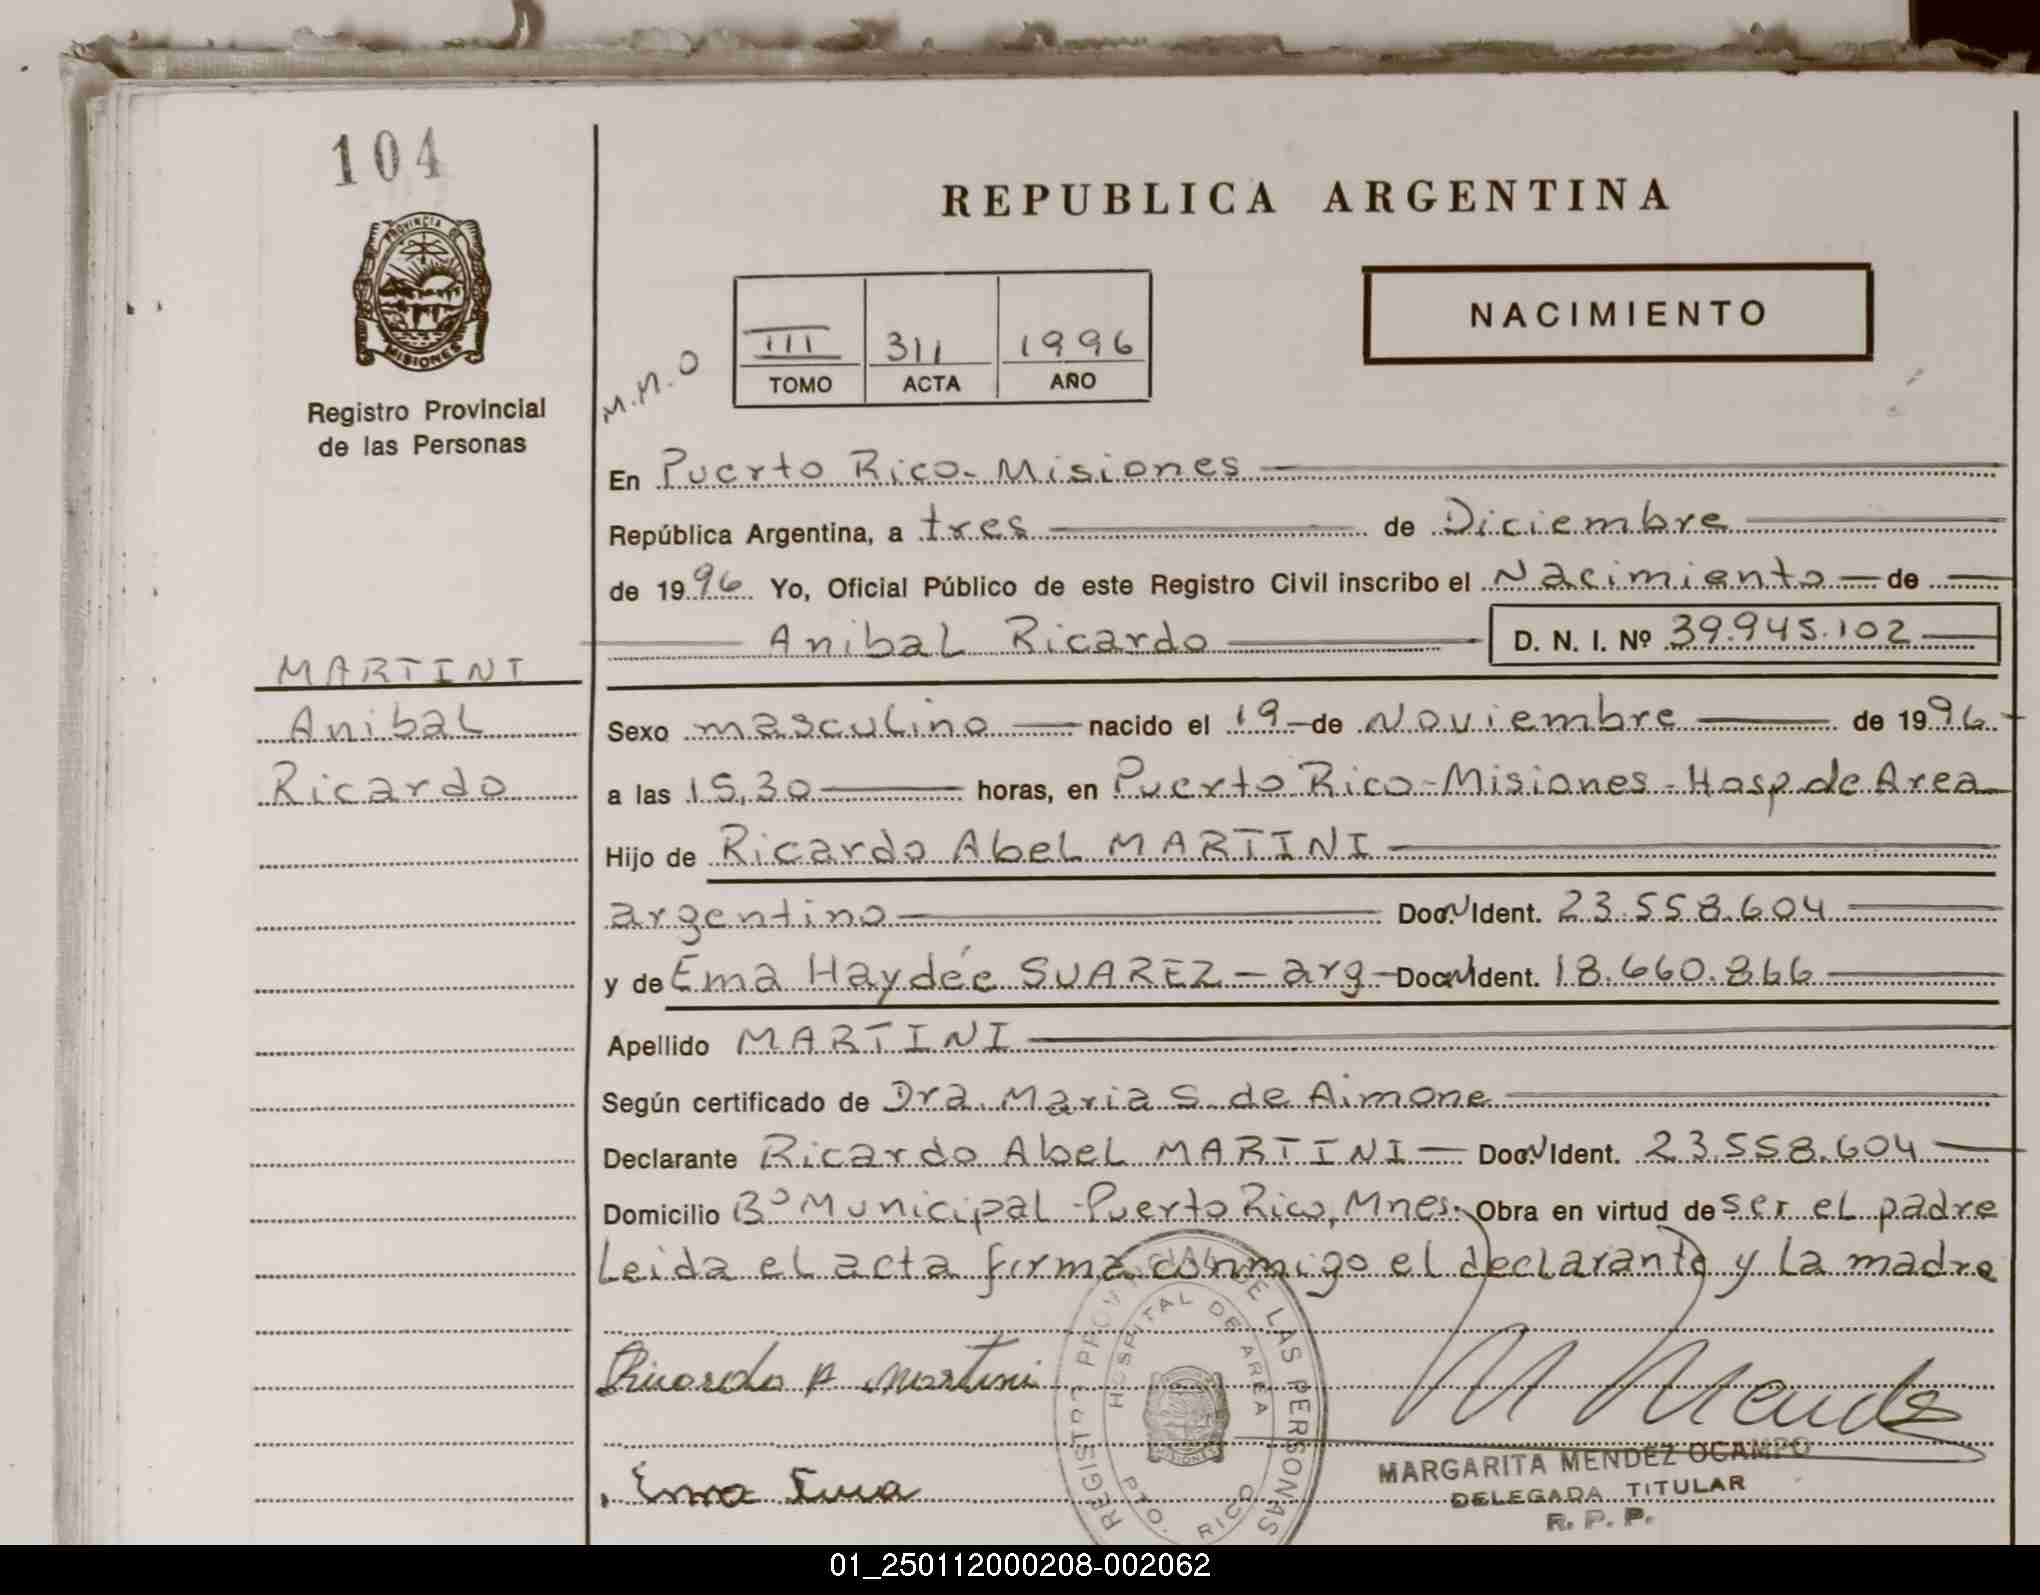 104
PROVINCIA DE
MISIONES
Registro Provincial
de las Personas
REPUBLICA ARGENTINA
NACIMIENTO
M.M.O
III 311 1996
TOMO ACTA AÑO
En Puerto Rico-Misiones
República Argentina, a tres de Diciembre
de 1996 Yo, Oficial Público de este Registro Civil inscribo el Nacimiento de
Anibal Ricardo D. N. I. Nº 39.945.102
MARTINI
Anibal
Ricardo
Sexo masculino nacido el 19 de Noviembre de 1996
a las 15,30 horas, en Puerto Rico-Misiones-Hosp de Area
Hijo de Ricardo Abel MARTINI
argentino Doc. Ident. 23.558.604
y de Ema Haydée SUAREZ - arg - Doc. Ident. 18.660.866
Apellido MARTINI
Según certificado de Dra. Maria S. de Aimone
Declarante Ricardo Abel MARTINI Doc. Ident. 23.558.604
Domicilio Bº Municipal-Puerto Rico, Mnes. Obra en virtud de ser el padre
Leida el acta firma conmigo el declarante y la madre
Ricardo A Martini
REGISTRO PROVINCIAL DE LAS PERSONAS
HOSPITAL DE AREA
PTO. RICO
MISIONES
M Mendez
MARGARITA MENDEZ OCAMPO
DELEGADA TITULAR
R. P. P.
01_250112000208-002062